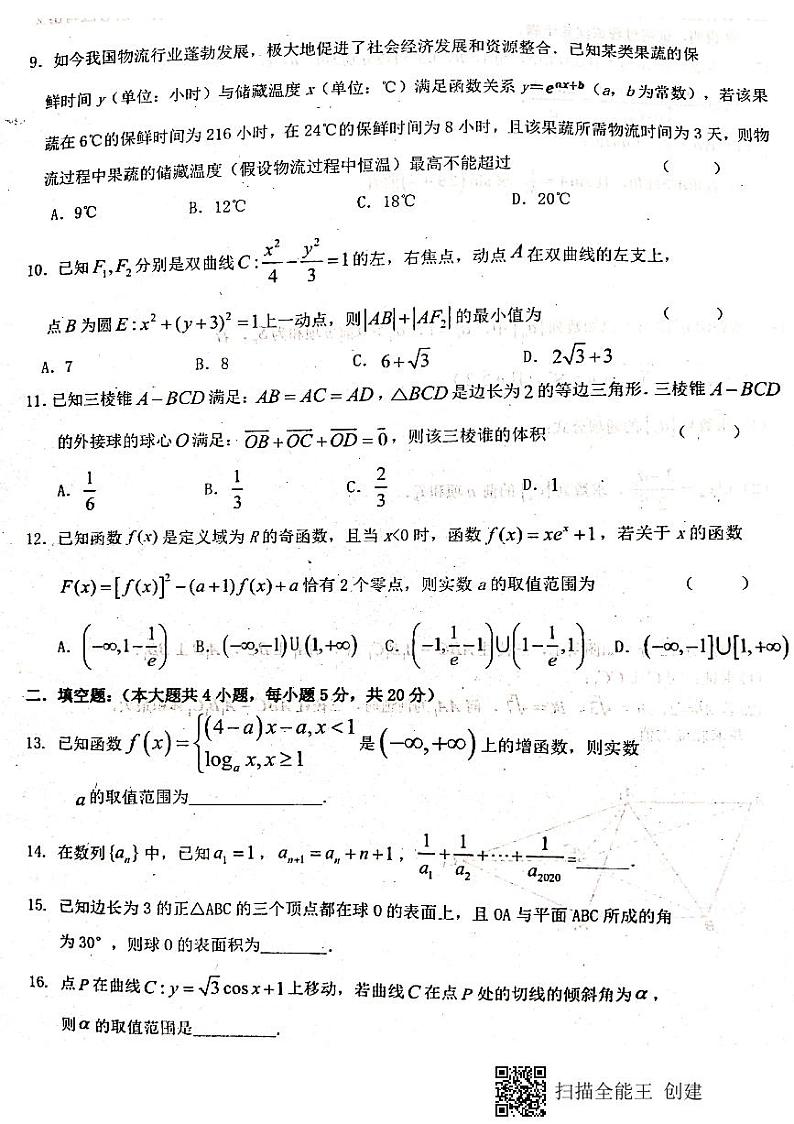 9. 如今我国物流行业蓬勃发展，极大地促进了社会经济发展和资源整合．已知某类果蔬的保
鲜时间 y（单位：小时）与储藏温度 x（单位：℃）满足函数关系 y=e^{ax+b}（a，b为常数），若该果
蔬在 6℃的保鲜时间为 216 小时，在 24℃的保鲜时间为 8 小时，且该果蔬所需物流时间为 3 天，则物
流过程中果蔬的储藏温度（假设物流过程中恒温）最高不能超过 （ ）
A. 9℃ B. 12℃ C. 18℃ D. 20℃
10. 已知F₁,F₂分别是双曲线C:x²/4-y²/3=1的左，右焦点，动点A在双曲线的左支上，
点B为圆E:x²+(y+3)²=1上一动点，则|AB|+|AF₂|的最小值为 （ ）
A. 7 B. 8 C. 6+√3 D. 2√3+3
11. 已知三棱锥A-BCD满足：AB=AC=AD，△BCD是边长为2的等边三角形．三棱锥A-BCD
的外接球的球心O满足：OB+OC+OD=0，则该三棱谁的体积 （ ）
A. 1/6 B. 1/3 C. 2/3 D. 1
12. 已知函数f(x)是定义域为R的奇函数，且当x<0时，函数f(x)=xeˣ+1，若关于x的函数
F(x)=[f(x)]²-(a+1)f(x)+a恰有2个零点，则实数a的取值范围为 （ ）
A. (-∞,1-1/e) B. (-∞,-1)∪(1,+∞) C. (-1,1/e-1)∪(1-1/e,1) D. (-∞,-1]∪[1,+∞)
二. 填空题：（本大题共4小题，每小题5分，共20分）
13. 已知函数f(x)={(4-a)x-a,x<1 是(-∞,+∞)上的增函数，则实数
logₐx,x≥1
a的取值范围为_____.
14. 在数列{aₙ}中，已知a₁=1，aₙ₊₁=aₙ+n+1，1/a₁+1/a₂+⋯+1/a₂₀₂₀=_____.
15. 已知边长为3的正△ABC的三个顶点都在球O的表面上，且OA与平面ABC所成的角
为30°，则球O的表面积为_____.
16. 点P在曲线C:y=√3cosx+1上移动，若曲线C在点P处的切线的倾斜角为α，
则α的取值范围是_____.
扫描全能王 创建